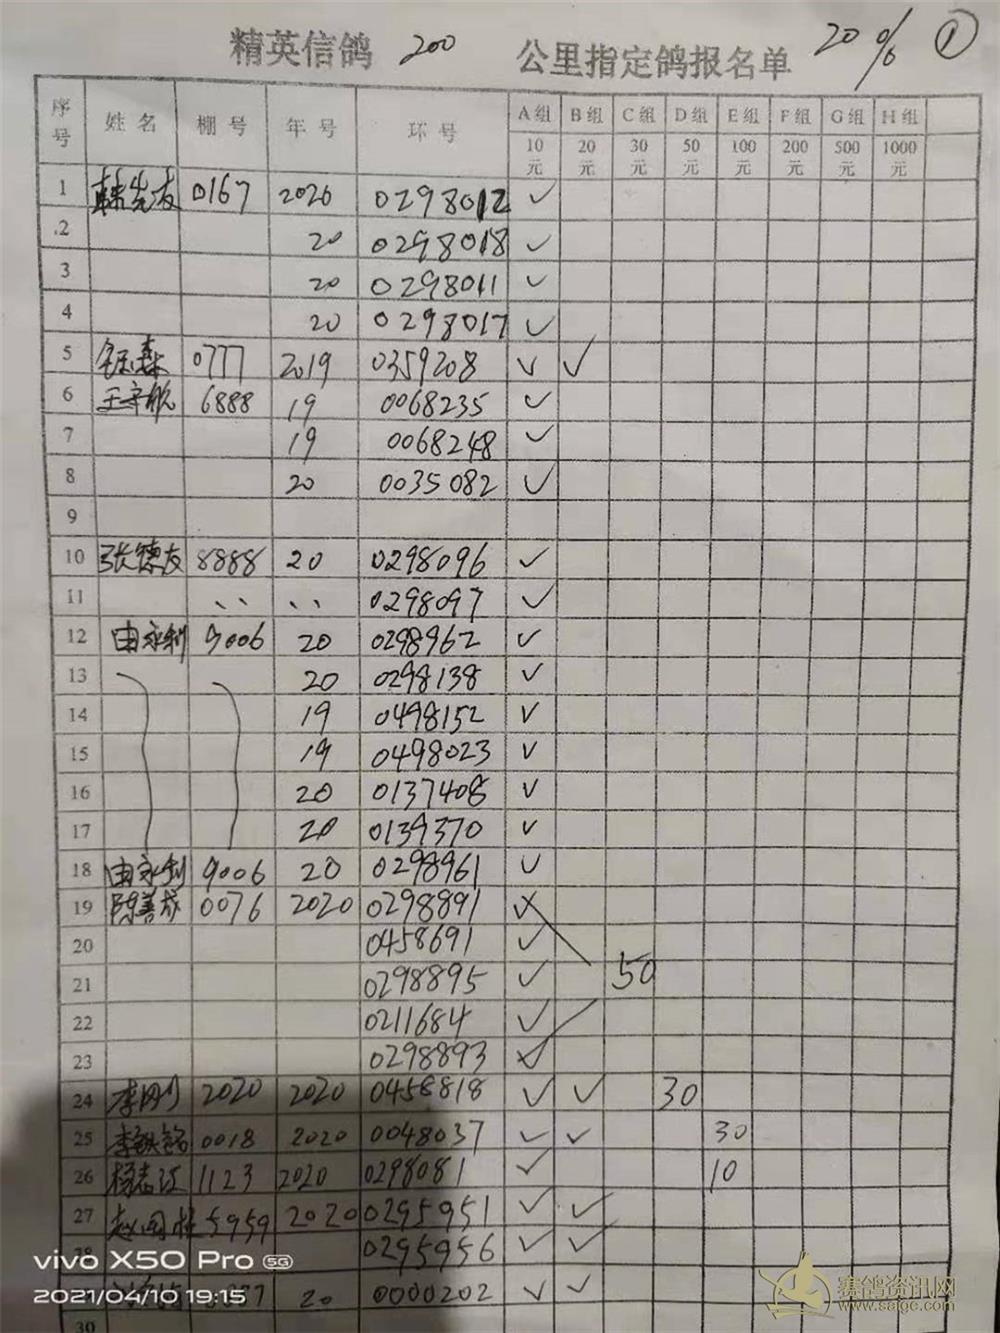 精英信鸽 200 公里指定鸽报名单 20% ①
序号 姓名 棚号 年号 环号 A组 B组 C组 D组 E组 F组 G组 H组
10元 20元 30元 50元 100元 200元 500元 1000元
1 韩先友 0167 2020 0298012 ✓
2 20 0298018 ✓
3 20 0298011 ✓
4 20 0298017 ✓
5 森 0777 2019 0359208 ✓ ✓
6 王 6888 19 0068235 ✓
7 19 0068248 ✓
8 20 0035082 ✓
9
10 张德友 8888 20 0298096 ✓
11 、、 、、 0298097 ✓
12 由永利 9006 20 0298962 ✓
13 20 0298138 ✓
14 19 0498152 ✓
15 19 0498023 ✓
16 20 0137408 ✓
17 20 0139370 ✓
18 由永利 9006 20 0298961 ✓
19 陈善成 0076 2020 0298891 ✓
20 0458691 ✓
21 0298895 ✓ 50
22 0211684 ✓
23 0298893 ✓
24 李刚 2020 2020 0458818 ✓ ✓ 30
25 李铁铭 0018 2020 0048037 ✓ ✓ 30
26 杨志江 1123 2020 0298081 ✓ 10
27 赵国 5959 2020 0295951 ✓ ✓
28 0295956 ✓ ✓
20 0000202 ✓ ✓
30
vivo X50 Pro 5G
2021/04/10 19:15
赛鸽资讯网
www.saige.com